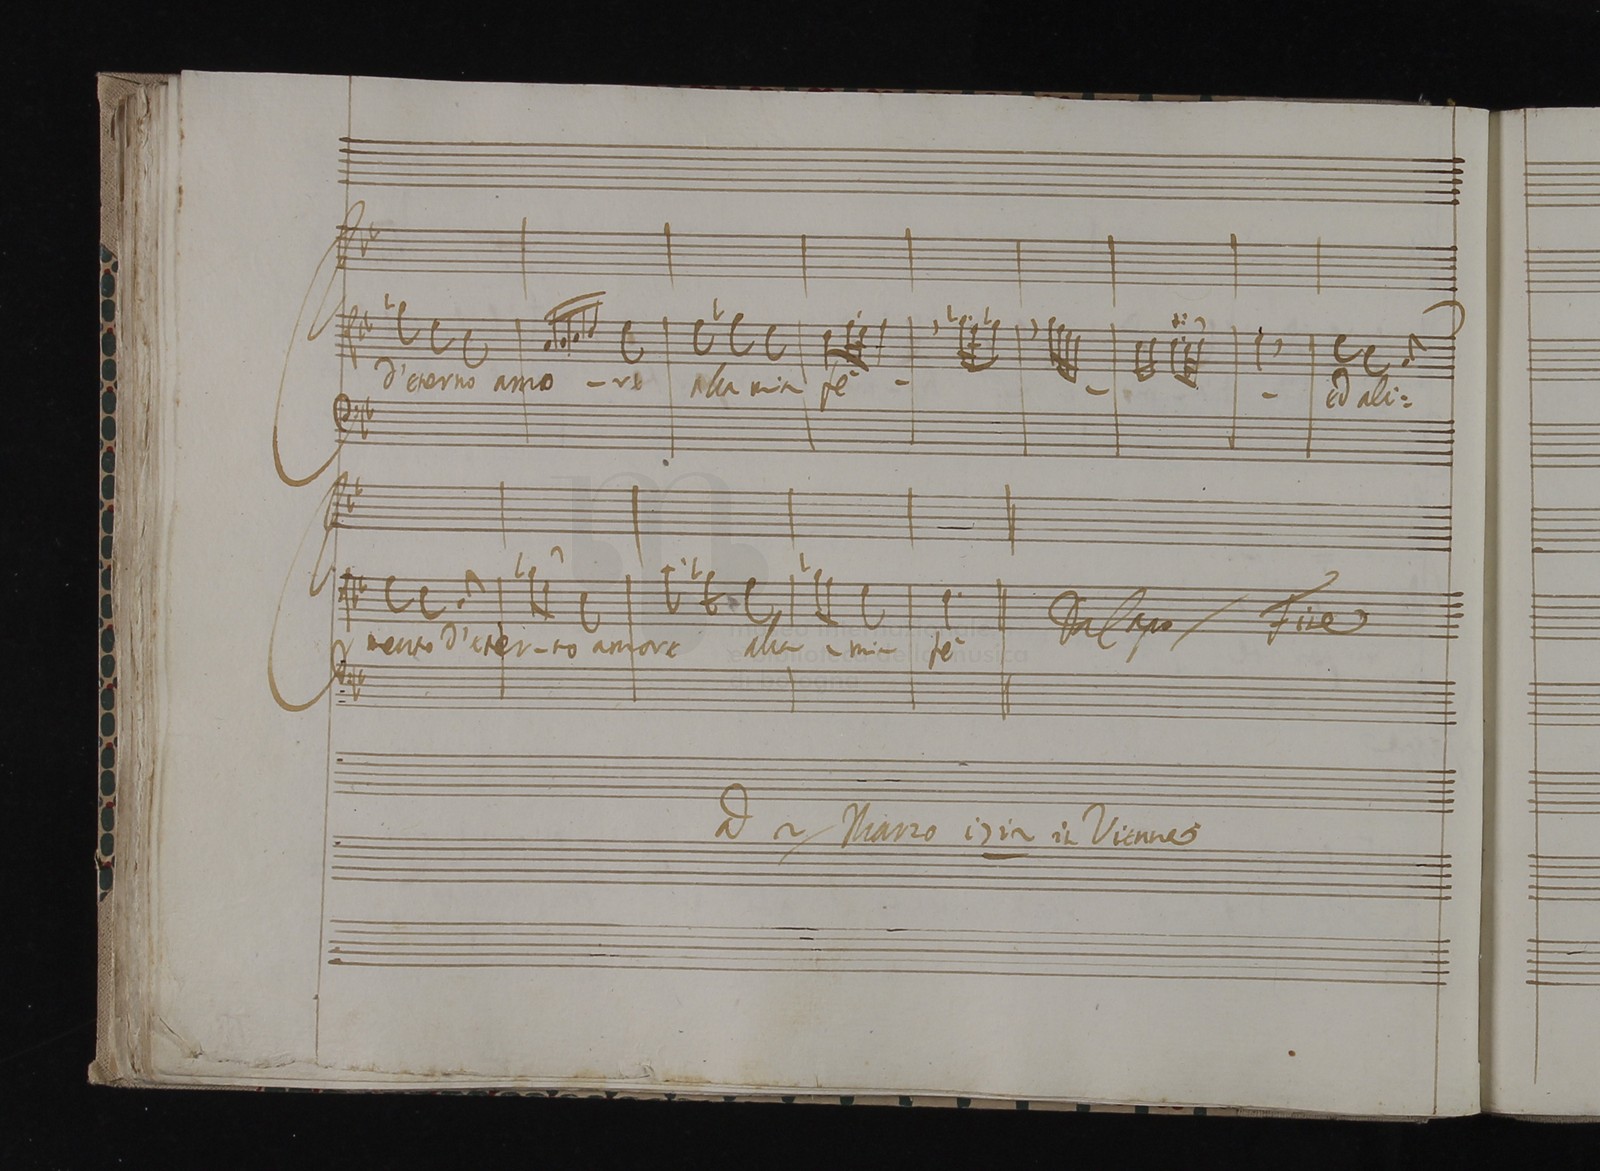 d'eterno amo - re alla mia fè - - - ed ali=
mento d'eter-no amore alla - mia fè
Da Capo Fine
museo internazionale
e biblioteca della musica
di bologna
Marzo in Vienna